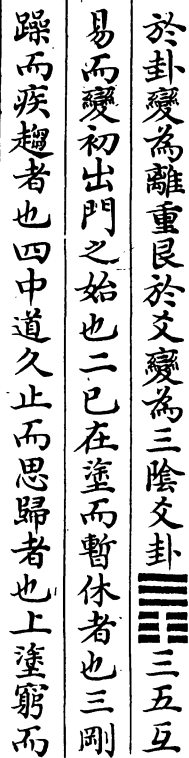 於卦變為離重艮於爻變為三陰爻卦䷋三五互
易而變初出門之始也二已在塗而暫休者也三剛
躁而疾趨者也四中道久止而思歸者也上塗窮而